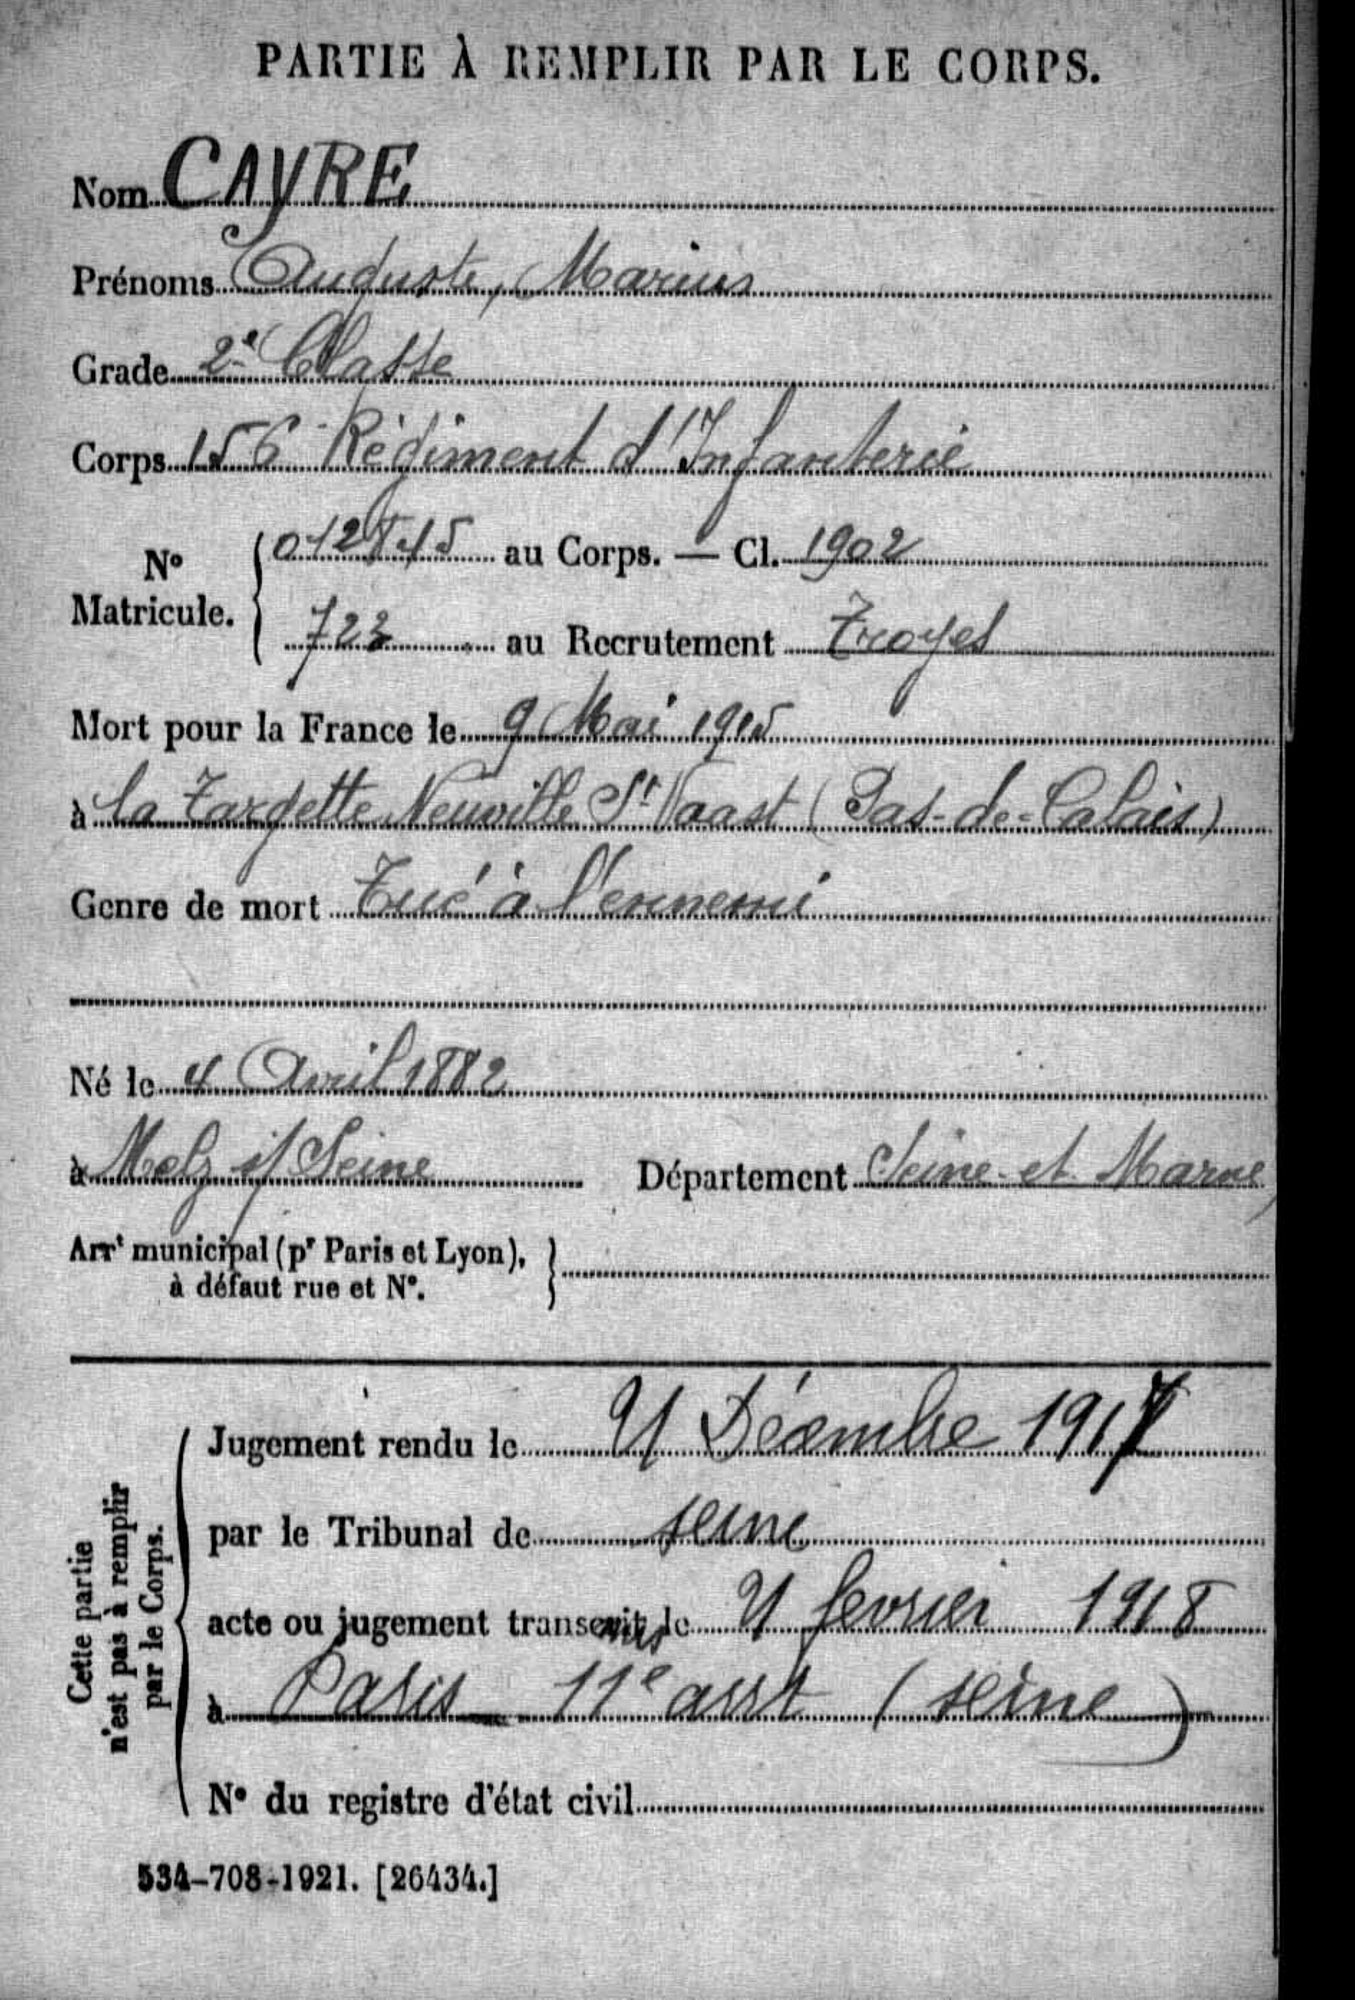 PARTIE À REMPLIR PAR LE CORPS.
Nom CAYRE
Prénoms Auguste, Marius
Grade 2e Classe
Corps 156 Régiment d'Infanterie
No Matricule. { 012845 au Corps. — Cl. 1902
723 au Recrutement Troyes
Mort pour la France le 9 Mai 1915
à la Targette Neuville St Vaast (Pas-de-Calais)
Genre de mort Tué à l'ennemi
Né le 4 Avril 1882
à Melz s/ Seine Département Seine-et-Marne
Arrt municipal (pr Paris et Lyon), à défaut rue et No. }
Cette partie n'est pas à remplir par le Corps.
Jugement rendu le 21 Décembre 1917
par le Tribunal de Seine
acte ou jugement transcrit le 21 février 1918
à Paris 11e arrt (Seine)
No du registre d'état civil
534-708-1921. [26434.]